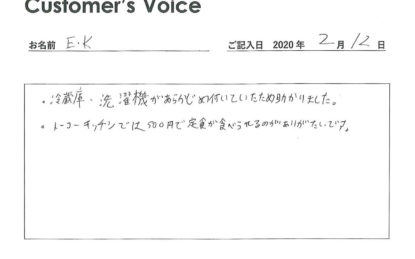 Customer's Voice
お名前 E.K ご記入日 2020年 2月12日
・冷蔵庫・洗濯機があらかじめ付いていたため助かりました。
・トーコーキッチンでは500円で定食が食べられるのがありがたいです。